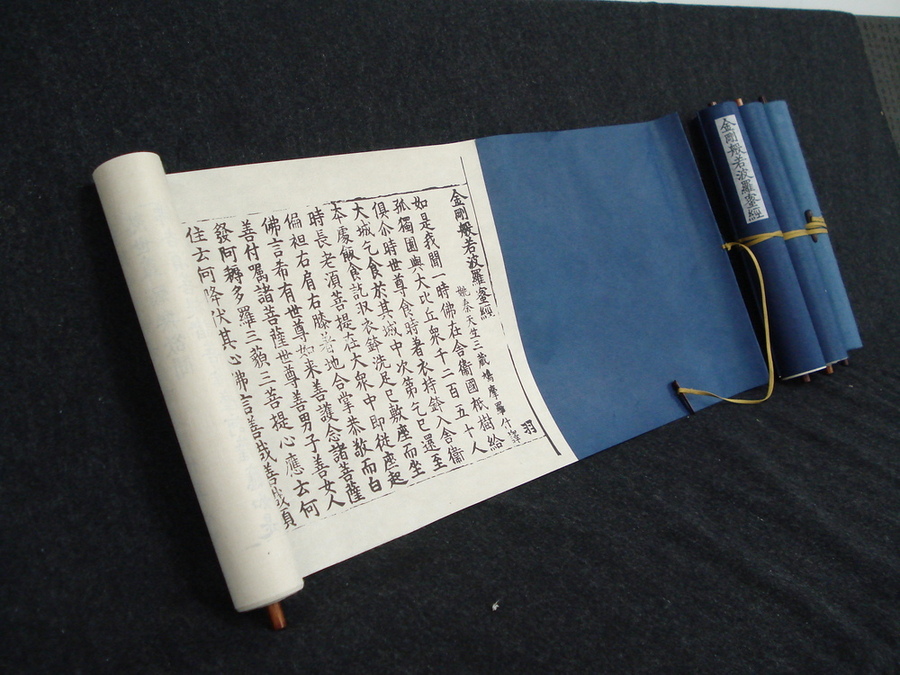 金剛般若波羅蜜經 羽
姚秦天竺三藏鳩摩羅什譯
如是我聞一時佛在舍衛國祇樹給
孤獨園與大比丘衆千二百五十人
俱尒時世尊食時著衣持鉢入舍衛
大城乞食於其城中次第乞已還至
本處飯食訖収衣鉢洗足已敷座而坐
時長老須菩提在大衆中即從座起
偏袒右肩右膝著地合掌恭敬而白
佛言希有世尊如來善護念諸菩薩
善付囑諸菩薩世尊善男子善女人
發阿耨多羅三藐三菩提心應云何
住云何降伏其心佛言善哉善哉須
金剛般若波羅蜜經